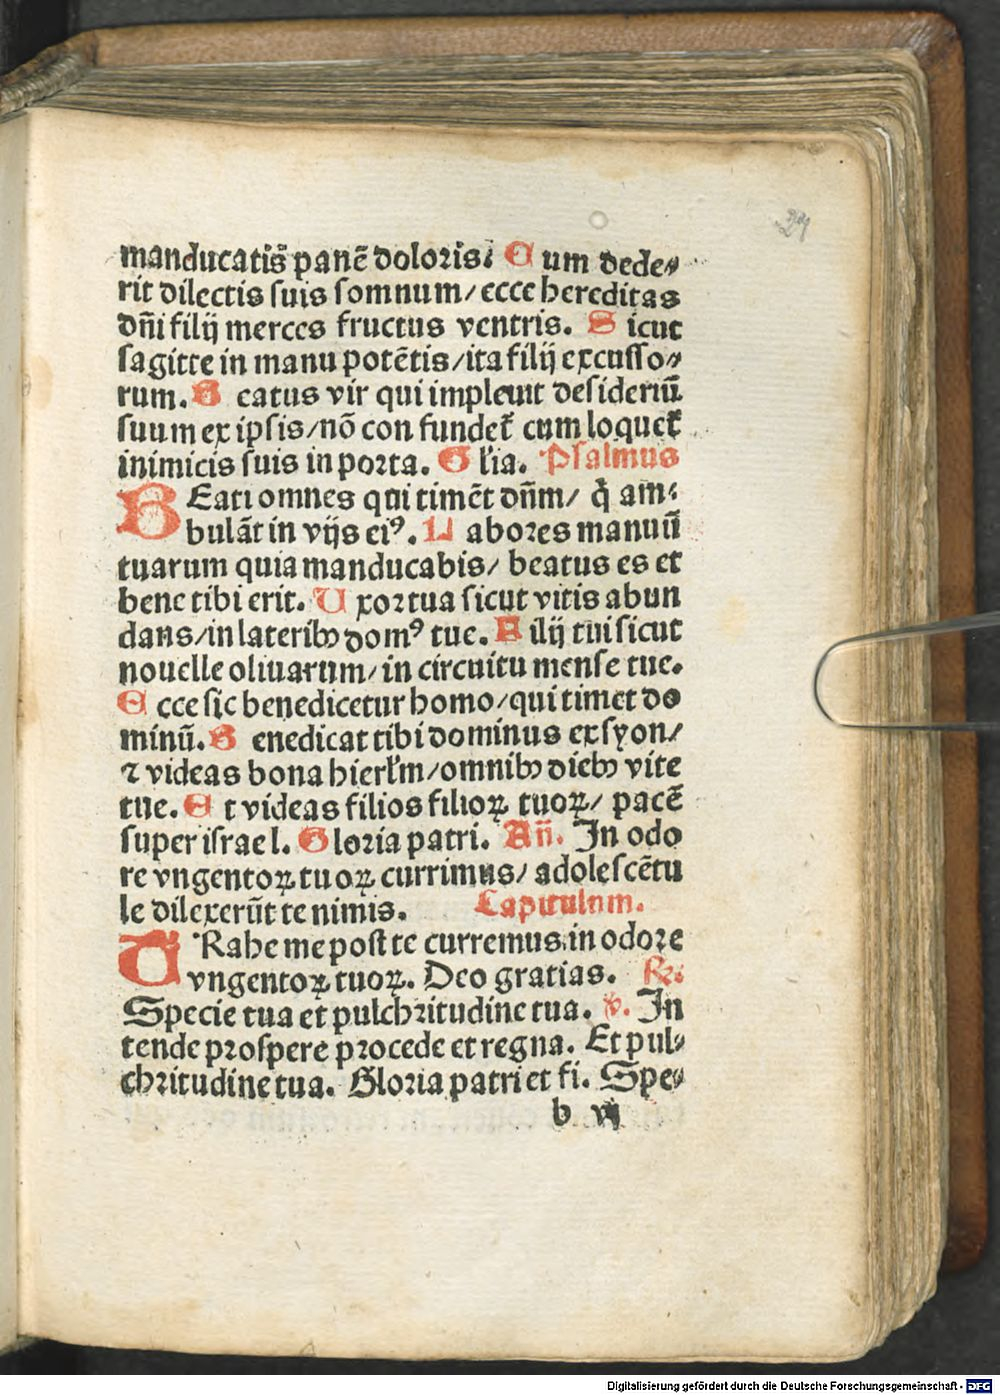 29
manducatis panē doloris. Cum dede⸗
rit dilectis suis somnum/ ecce hereditas
dñi filij merces fructus ventris. Sicut
sagitte in manu potētis/ ita filij excusso⸗
rum. Beatus vir qui impleuit desideriū
suum ex ipsis/ nō con fundet᷑ cum loquet᷑
inimicis suis in porta. Gl'ia. Psalmus
BEati omnes qui timēt dñm/ q̇ am⸗
bulāt in vijs eiꝰ. Labores manuū
tuarum quia manducabis/ beatus es et
bene tibi erit. Uxor tua sicut vitis abun
dans/ in lateribꝫ domꝰ tue. Filij tui sicut
nouelle oliuarum/ in circuitu mense tue.
Ecce sic benedicetur homo/ qui timet do
minū. Benedicat tibi dominus ex syon/
⁊ videas bona hierl'm/ omnibꝫ diebꝫ vite
tue. Et videas filios filioꝝ tuoꝝ/ pacē
super israel. Gloria patri. Añ. In odo
re vngentoꝝ tuoꝝ currimus/ adolescētu
le dilexerūt te nimis. Capitulum.
TRahe me post te curremus in odore
vngentoꝝ tuoꝝ. Deo gratias. R⁊.
Specie tua et pulchritudine tua. v. In
tende prospere procede et regna. Et pul⸗
chritudine tua. Gloria patri et fi. Spe⸗
b vj
Digitalisierung gefördert durch die Deutsche Forschungsgemeinschaft - DFG